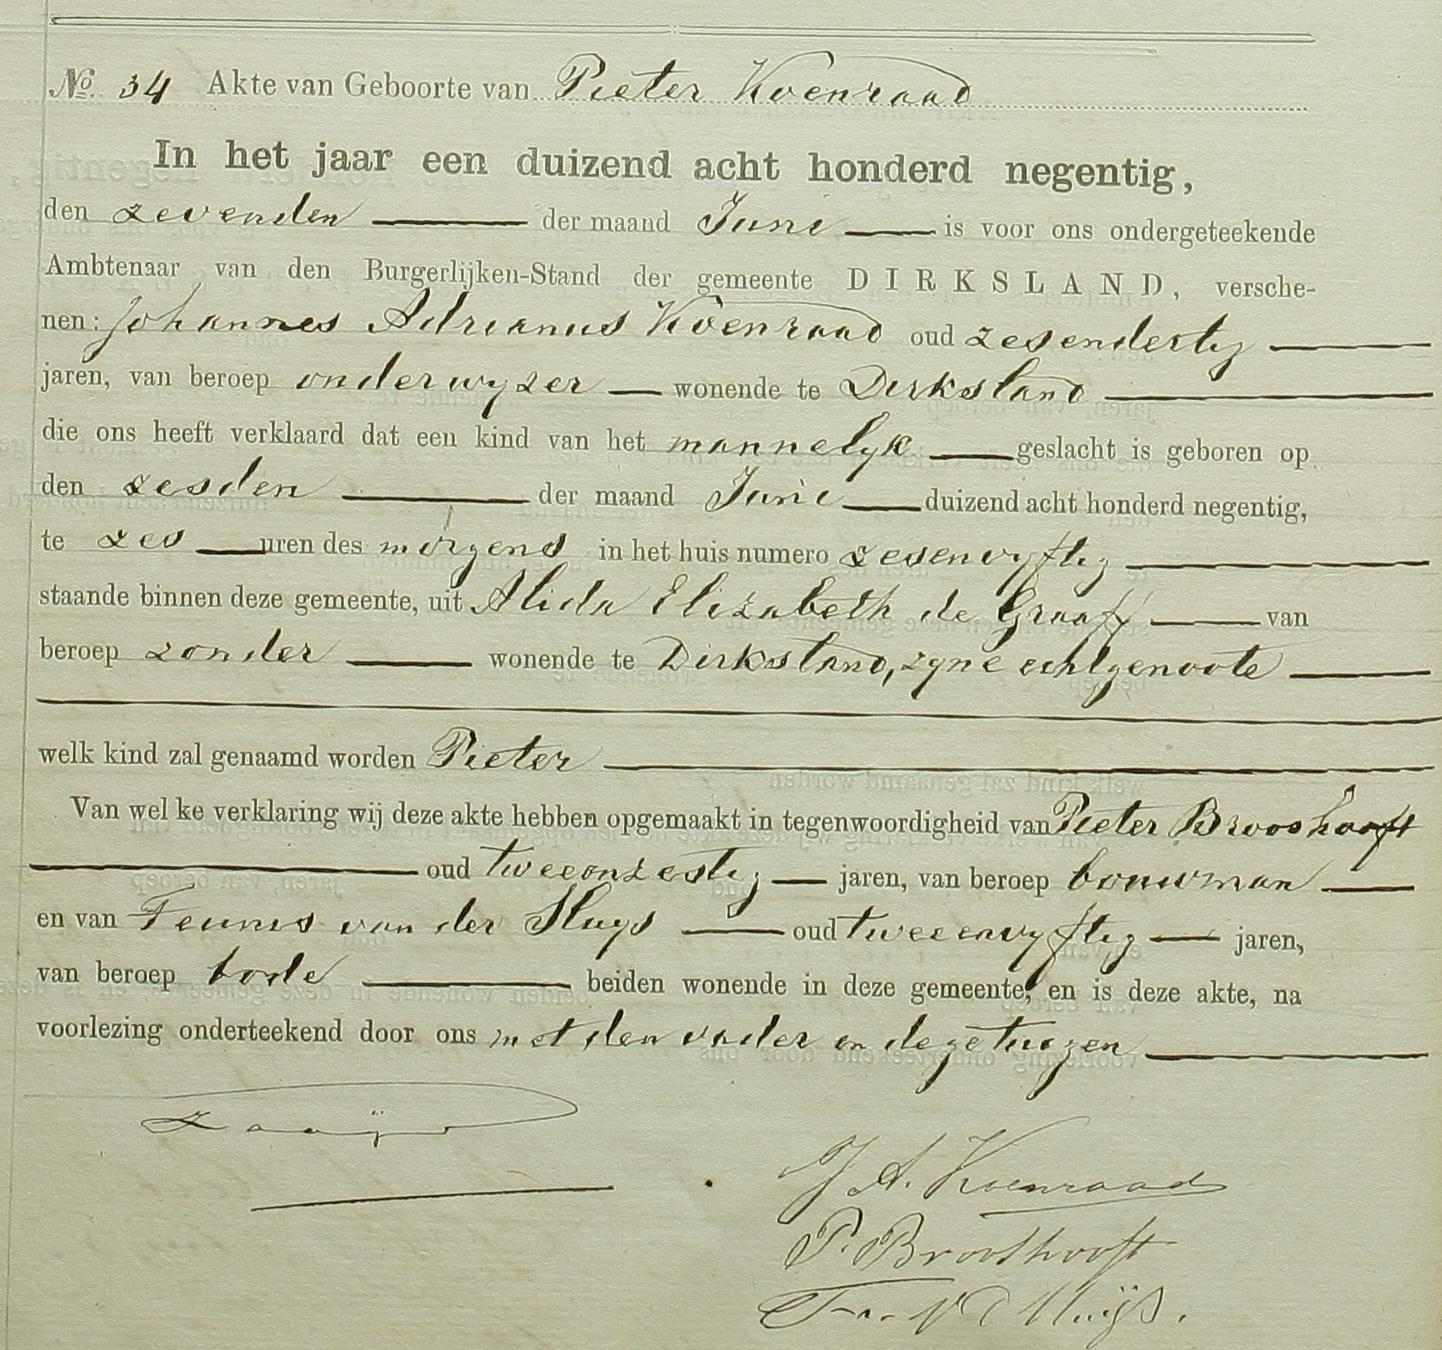 No. 34 Akte van Geboorte van Pieter Koenraad
In het jaar een duizend acht honderd negentig,
den zevenden der maand Juni is voor ons ondergeteekende
Ambtenaar van den Burgerlijken-Stand der gemeente DIRKSLAND, versche-
nen: Johannes Adrianus Koenraad oud zesendertig
jaren, van beroep onderwyzer wonende te Dirksland
die ons heeft verklaard dat een kind van het mannelyk geslacht is geboren op
den zesden der maand Juni duizend acht honderd negentig,
te zes uren des morgens in het huis numero zesenvyftig
staande binnen deze gemeente, uit Alida Elizabeth de Graaff van
beroep zonder wonende te Dirksland, zyne echtgenoote
welk kind zal genaamd worden Pieter
Van wel ke verklaring wij deze akte hebben opgemaakt in tegenwoordigheid van Pieter Brooshooft
oud tweeenzestig jaren, van beroep bouwman
en van Teunis van der Sluys oud tweeenvyftig jaren,
van beroep bode beiden wonende in deze gemeente, en is deze akte, na
voorlezing onderteekend door ons met den vader en de getuigen
Zaaÿer
J A. Koenraad
P. Brooshooft
T. v d Sluÿs.